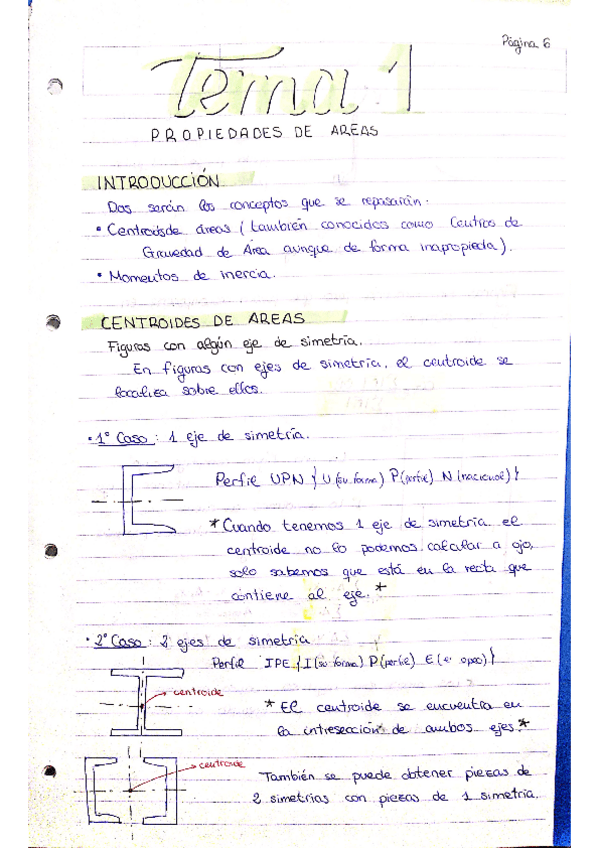 Página 6
Tema 1
PROPIEDADES DE AREAS
INTRODUCCIÓN
Dos serán los conceptos que se repasarán.
• Centroidsde áreas (también conocidos como Centros de
Gravedad de Área aunque de forma inapropieda).
• Momentos de inercia.
CENTROIDES DE AREAS
Figuras con algún eje de simetría.
En figuras con ejes de simetría, el centroide se
localiza sobre ellos.
• 1º Caso: 1 eje de simetría.
Perfil UPN { U (su forma) P (perfil) N (nacional) }
* Cuando tenemos 1 eje de simetría el
centroide no lo podemos calcular a ojo,
solo sabemos que está en la recta que
contiene al eje. *
• 2º Caso: 2 ejes de simetría
Perfil IPE { I (su forma) P (perfil) E }
centroide
* El centroide se encuentra en
la intresección de ambos ejes. *
centroide
También se puede obtener piezas de
2 simetrías con piezas de 1 simetría.